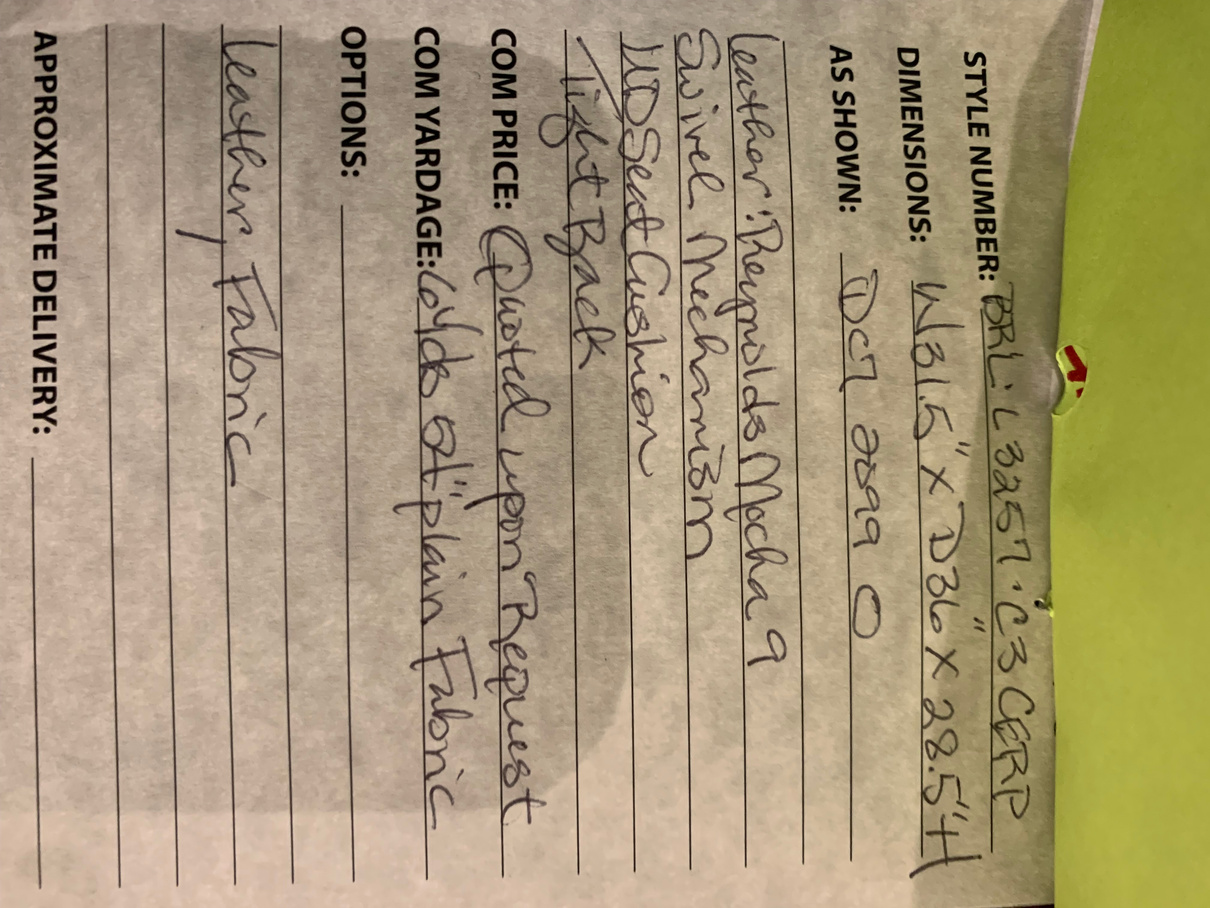 STYLE NUMBER: BRL: L3257 . C3 CERP
DIMENSIONS: W31.5" X D36" X 28.5"H
AS SHOWN: 2099
Leather: Reynolds Mocha 9
Swivel Mechanism
UD Seat Cushion
Tight Back
COM PRICE: Quoted upon Request
COM YARDAGE: 6 yds plain Fabric
OPTIONS:
Leather, Fabric
APPROXIMATE DELIVERY: